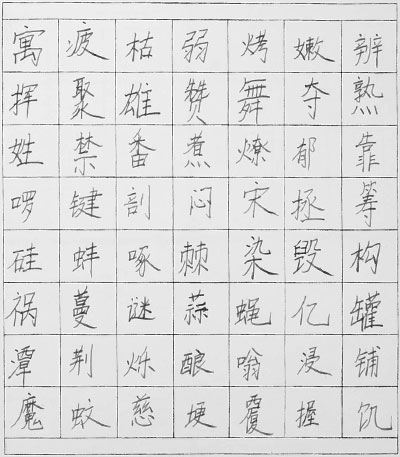 寓疲枯弱烤嫩辨
挥聚雄赞舞夺熟
姓禁番煮燎郁靠
啰键剖闷宋拯筹
硅蚌啄棘染毁构
祸蔓谜蒜蝇亿罐
潭荆烁酿嗡浸铺
魔蚊慈埂覆握饥